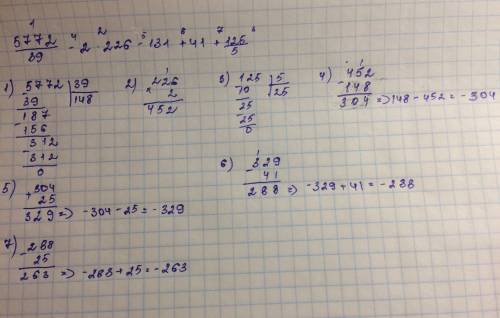 1 2
5772/39 -⁴ 2 · 226 -⁵ 131 +⁶ 41 +⁷ 125/5
1) 5772 | 39
39 | 148
187
156
312
312
0
2) 226
× 2
452
3) 125 | 5
10 | 25
25
25
0
4) - 452
148
304 => 148 - 452 = -304
5) + 304
25
329 => -304 - 25 = -329
6) - 329
41
288 => -329 + 41 = -288
7) - 288
25
263 => -288 + 25 = -263